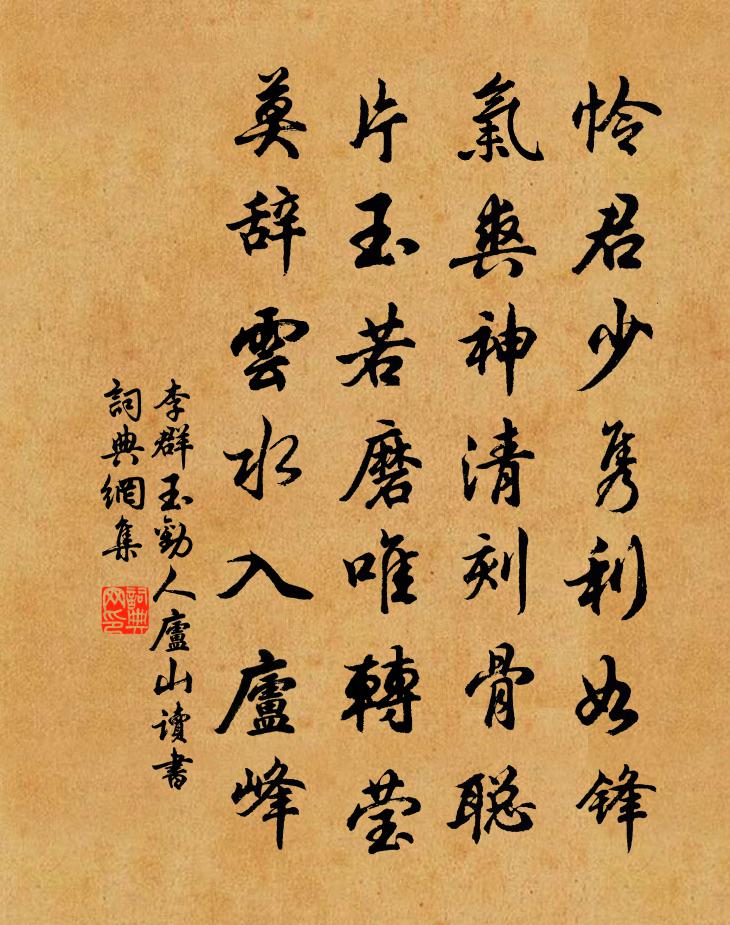 怜君少隽利如锋
氣爽神清刻骨聪
片玉若磨唯轉莹
莫辞雲水入廬峰
李群玉勸人廬山讀書
詞典網集
詞典网印